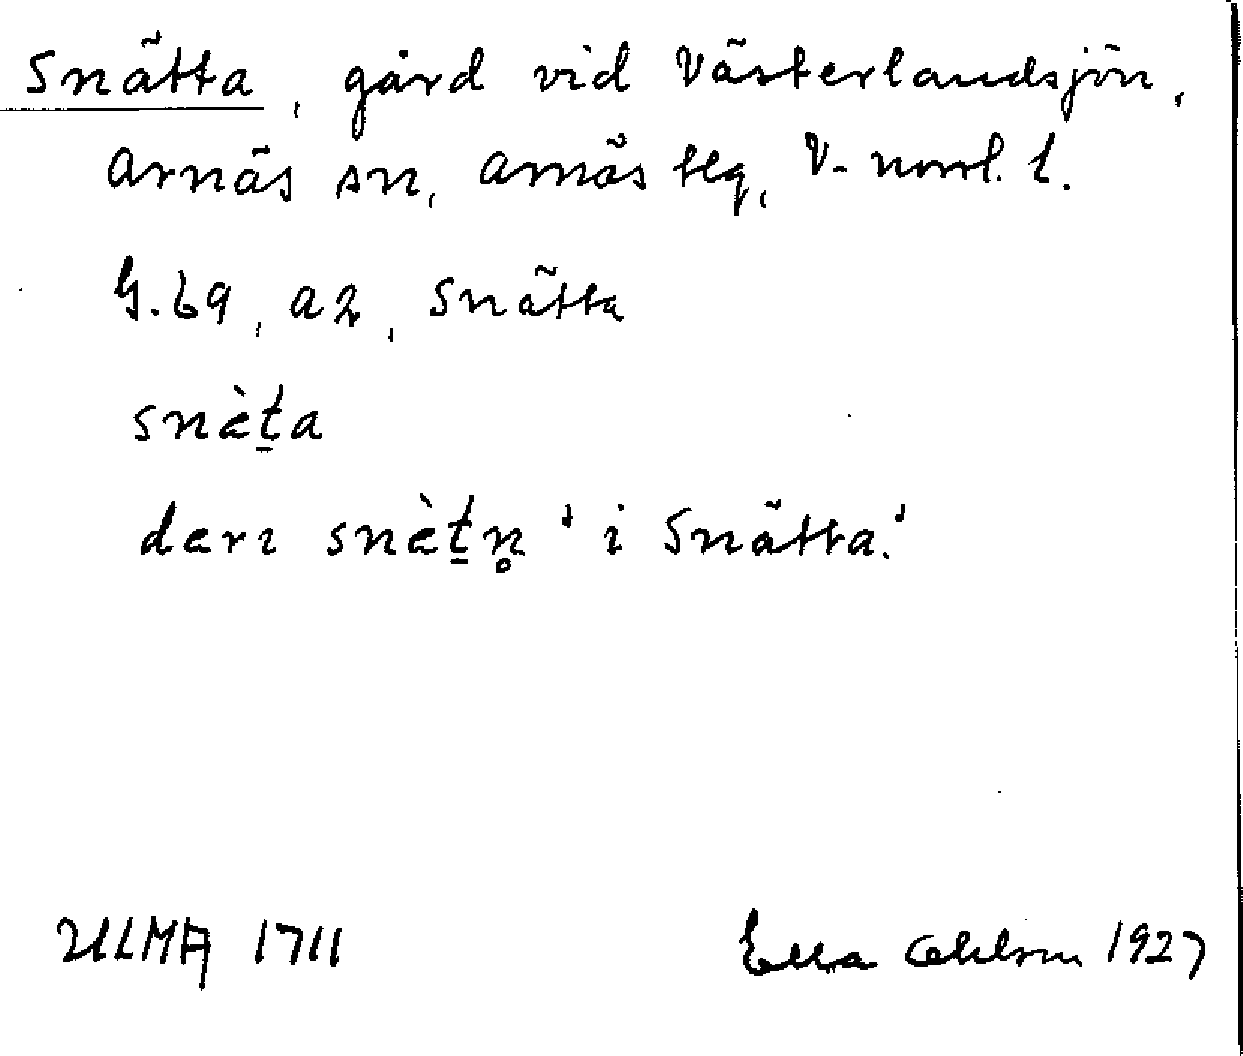 Snätta, gård vid Västerlandsjön,
Arnäs sn, Arnäs tlg, V-norrl. l.
G. 69, a2, Snätta
snὲt̠a
dɛrɩ snὲt̠n̥ 'i Snätta.'
ULMA 1711
Ella Ohlson 1927